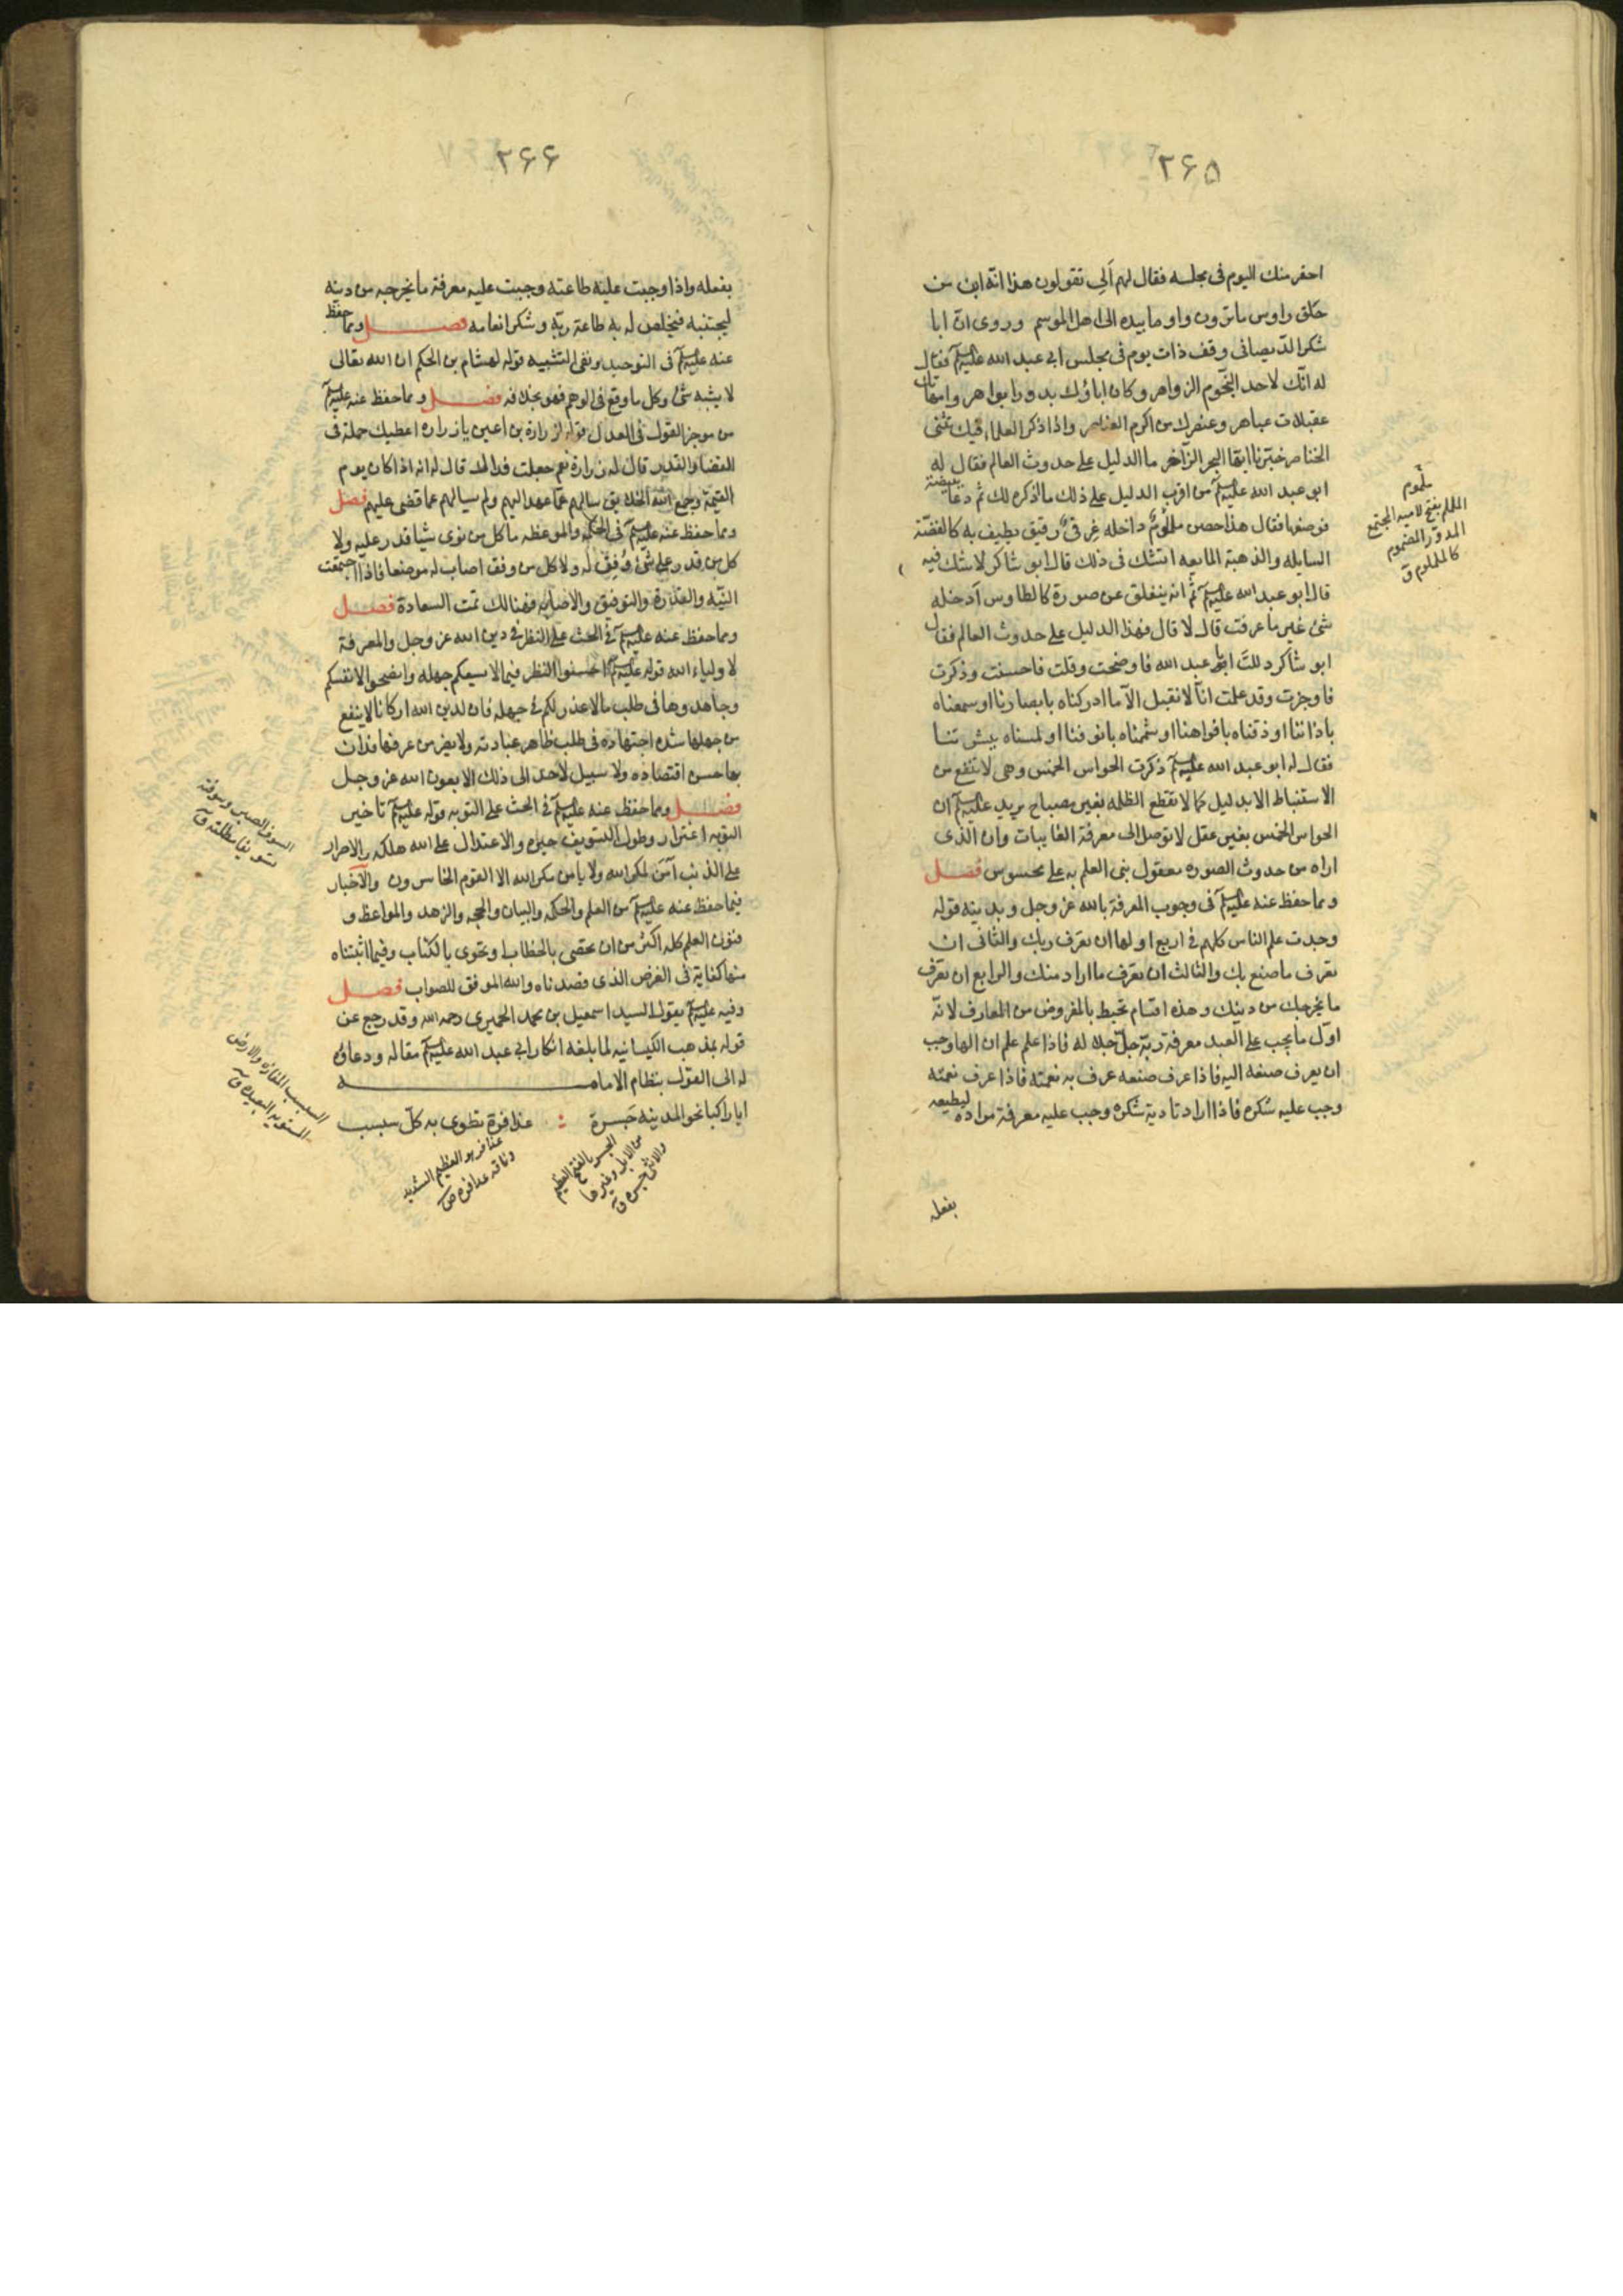 ۲۶۵
احقر منك اليوم فى مجلسه فقال لهم ألي تقولون هذا انّه ابن من
حلق راوس ماترون واوما بيده الى اهل الموسم وروى انّ ابا
شكر الدّيصانى وقف ذات يوم فى مجلس ابى عبد الله عليه السلم فقال
له انّك لاحد النجوم الزواهر وكان اباؤك بدورا بواهر وامهاتك
عقيلات عباهر وعنصرك من اكرم العناصر واذا ذكر العلماء فبك تثنى
الخناصر خبّرنا ايّها البحر الزّاخر ما الدليل على حدوث العالم فقال له
ابو عبد الله عليه السلم من اقرب الدليل على ذلك ما اذكره لك ثم دعا ببيضة
فوضعها فقال هذا حصن ملموم داخله غرقئ رقيق يطيف به كالفضّة
السايله والذهبة المايعه اتشك فى ذلك قال ابو شاكر لاشك فيه
قال ابو عبد الله عليه السلم ثم انه ينفلق عن صورة كالطاوس أدخله
شئ غير ما عرفت قال لا قال فهذا الدليل على حدوث العالم فقال
ابو شاكر دللت ابا عبد الله فاوضحت وقلت فاحسنت وذكرت
فاوجزت وقد علمت انّا لا نقبل الّا ما ادركناه بابصارنا او سمعناه
باذاننا او ذقناه بافواهنا او شممناه بانوفنا او لمسناه ببشرتنا
فقال له ابو عبد الله عليه السلم ذكرت الحواس الخمس وهى لا تنفع من
الاستنباط الا بدليل كما لا تقطع الظلمه بغير مصباح يريد عليه السلم ان
الحواس الخمس بغير عقل لا توصل الى معرفة الغايبات وان الذى
اراه من حدوث الصوره معقول بنى العلم به على محسوس فصل
ومما حفظ عنه عليه السلم فى وجوب المعرفة بالله عز وجل وبدينه قوله
وجدت علم الناس كلهم فى اربع اولها ان تعرف ربك والثانى ان
تعرف ما صنع بك والثالث ان تعرف ما اراد منك والرابع ان تعرف
ما يخرجك من دينك وهذه اقسام تحيط بالمفروض من المعارف لانّه
اوّل ما يجب على العبد معرفة ربّه جلّ جلاله فاذا علم علم ان الها وجب
ان يعرف صنعه اليه فاذا عرف صنعه عرف به نعمته فاذا عرف نعمته
وجب عليه شكره فاذا اراد تادية شكره وجب عليه معرفة مراده ليطيعه
بفعله
ملموم
الململم بفتح لاميه المجتمع
المدوّر المضموم
كالملموم ق
۲۶۶
بفعله واذا وجبت عليه طاعته وجبت عليه معرفة ما يخرجه من دينه
ليجتنبه فيخلص له به طاعة ربّه وشكر انعامه فصل ومما حفظ
عنه عليه السلم فى التوحيد ونفى التشبيه قوله لهشام بن الحكم ان الله تعالى
لا يشبه شئ وكل ما وقع فى الوهم فهو بخلافه فصل ومما حفظ عنه عليه السلم
من موجز القول فى العدل قوله لزرارة بن اعين يا زراره اعطيك جملة فى
القضا والقدر قال له زرارة نعم جعلت فداك قال له انه اذا كان يوم
القيمة وجمع الله الخلايق سالهم عما عهد اليهم ولم يسالهم عما قضى عليهم فصل
ومما حفظ عنه عليه السلم فى الحكمه والموعظه ما كل من نوى شيئا قدر عليه ولا
كل من قدر على شئ وُفِقَ له ولا كل من وفق اصاب له موضعا فاذا اجتمعت
النيّه والقدره والتوفيق والاصابه فهنالك تمّت السعادة فصل
ومما حفظ عنه عليه السلم فى الحث على النظر فى دين الله عز وجل والمعرفة
لاولياء الله قوله عليه السلم احسنوا النظر فيما لا يسعكم جهله وانصحوا لانفسكم
وجاهدوها فى طلب ما لا عذر لكم فى جهله فان لدين الله اركانا لا ينفع
من جهلها شده اجتهاده فى طلب ظاهر عبادته ولا يضر من عرفها فدان
بها حسن اقتصاده ولا سبيل لاحد الى ذلك الا بعون الله عز وجل
فصل ومما حفظ عنه عليه السلم فى الحث على التوبه قوله عليه السلم تاخير
التوبه اغترار وطول التسويف حيره والاعتدال على الله هلكه والاصرار
على الذنب آمن لمكر الله ولا يامن مكر الله الا القوم الخاسرون والاخبار
فيما حفظ عنه عليه السلم من العلم والحكمه والبيان والحجه والزهد والمواعظ و
فنون العلم كله اكثر من ان تحصى بالخطاب او تحوى بالكتاب وفيما اثبتناه
منها كفاية فى الغرض الذى قصدناه والله الموفق للصواب فصل
وفيه عليه السلم يقول السيد اسمعيل بن محمد الحميرى رحمه الله وقد رجع عن
قوله بمذهب الكيسانيه لما بلغه انكار ابى عبد الله عليه السلم مقاله ودعاؤه
له الى القول بنظام الامامه
ايا راكبا نحو المدينه جَسرة عذافرة تطوى به كلّ سبسب
السوف الصبر وسوفته
تسويفا مطلته ق
السبسب المفازه والارض
المستويه البعيده ق
عذافر هو العظيم الشديد
وناقه عذافره ص
الجسر بالفتح العظيم
من الابل وغيرها
والانثى جسره ق